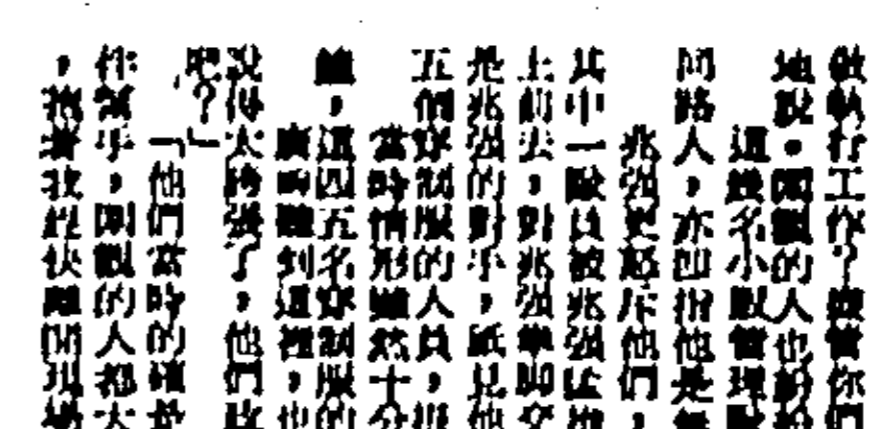 做執行工作？難嘗你們
地說。圍觀的人也紛紛
這幾名小販管理隊
問路人，亦即指他是無
兆強更怒斥他們，
其中一隊員被兆強猛地
上前去，對兆強拳脚交
是兆強的對手，祇見他
五個穿制服的人員，根
當時情形雖然十分
雄，這四五名穿制服的
廣聽到這裡，也
說得太誇張了，他們政
吧？」
「他們當時的確是
作幫手，圍觀的人都大
，拖著我趕快離開現場